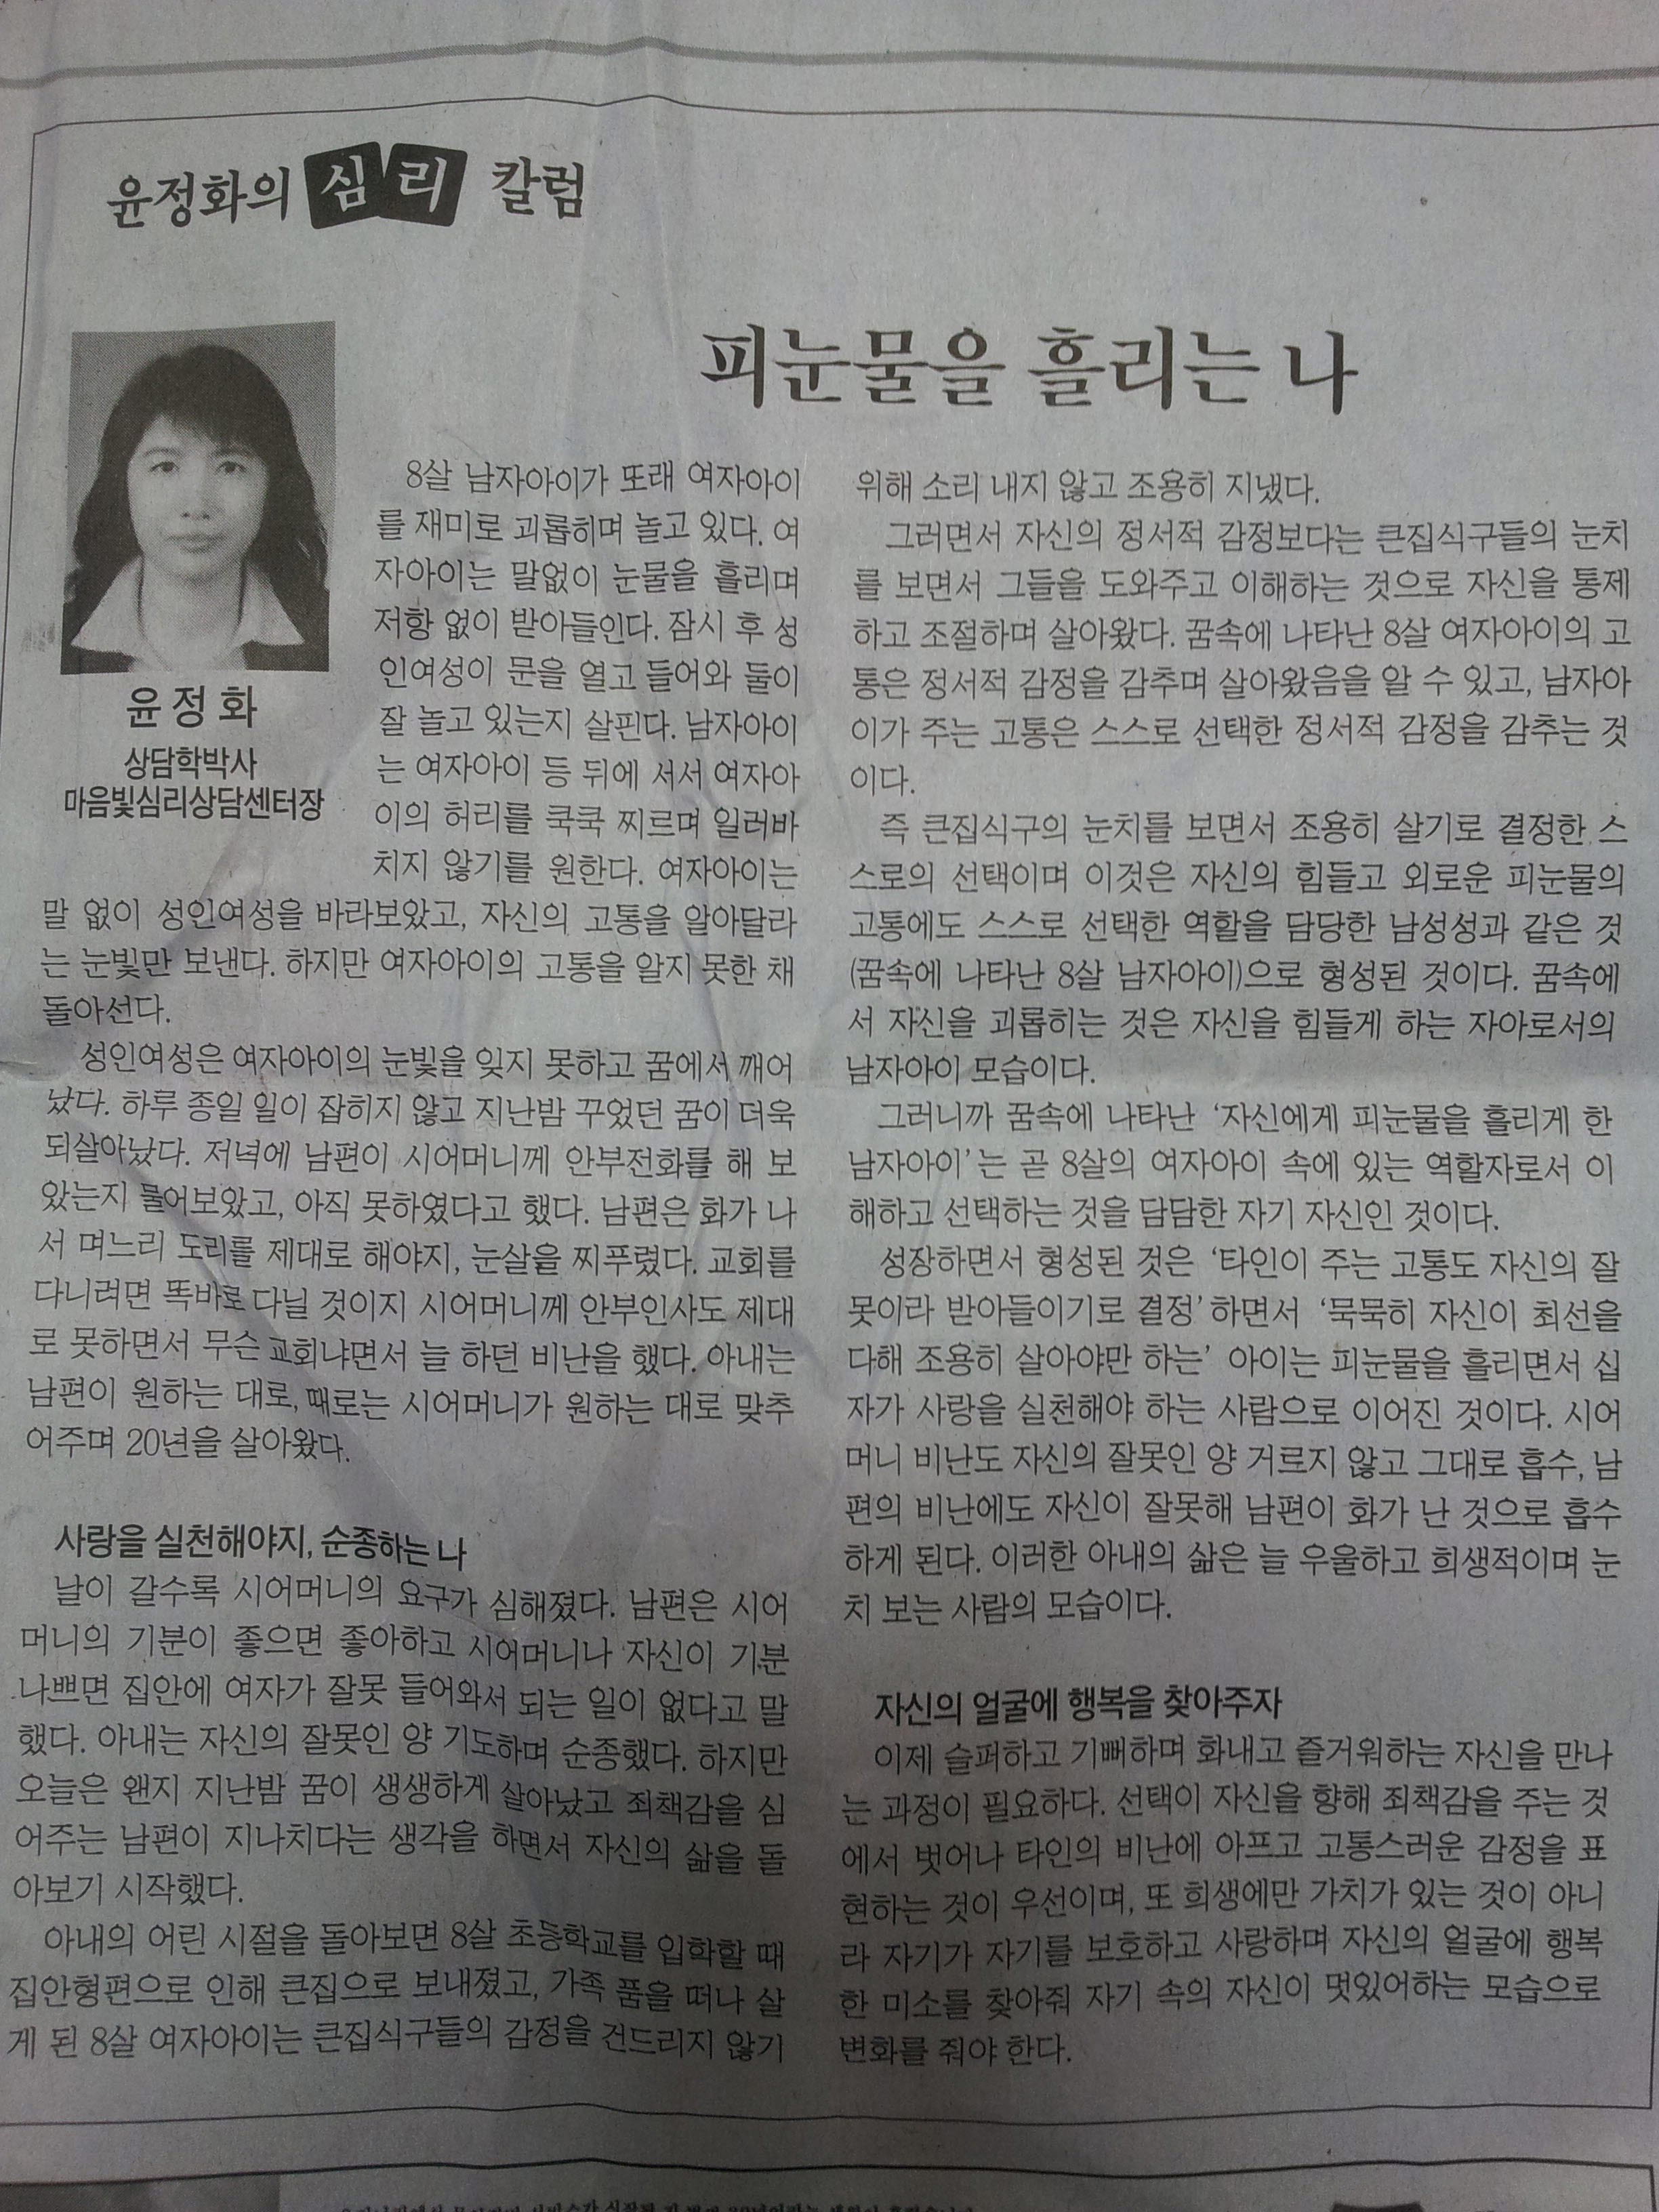 윤정화의 심리 칼럼
피눈물을 흘리는 나
윤정화
상담학박사
마음빛심리상담센터장
8살 남자아이가 또래 여자아이
를 재미로 괴롭히며 놀고 있다. 여
자아이는 말없이 눈물을 흘리며
저항 없이 받아들인다. 잠시 후 성
인여성이 문을 열고 들어와 둘이
잘 놀고 있는지 살핀다. 남자아이
는 여자아이 등 뒤에 서서 여자아
이의 허리를 쿡쿡 찌르며 일러바
치지 않기를 원한다. 여자아이는
말 없이 성인여성을 바라보았고, 자신의 고통을 알아달라
는 눈빛만 보낸다. 하지만 여자아이의 고통을 알지 못한 채
돌아선다.
성인여성은 여자아이의 눈빛을 잊지 못하고 꿈에서 깨어
났다. 하루 종일 일이 잡히지 않고 지난밤 꾸었던 꿈이 더욱
되살아났다. 저녁에 남편이 시어머니께 안부전화를 해 보
았는지 물어보았고, 아직 못하였다고 했다. 남편은 화가 나
서 며느리 도리를 제대로 해야지, 눈살을 찌푸렸다. 교회를
다니려면 똑바로 다닐 것이지 시어머니께 안부인사도 제대
로 못하면서 무슨 교회냐면서 늘 하던 비난을 했다. 아내는
남편이 원하는 대로, 때로는 시어머니가 원하는 대로 맞추
어주며 20년을 살아왔다.
사랑을 실천해야지, 순종하는 나
날이 갈수록 시어머니의 요구가 심해졌다. 남편은 시어
머니의 기분이 좋으면 좋아하고 시어머니나 자신이 기분
나쁘면 집안에 여자가 잘못 들어와서 되는 일이 없다고 말
했다. 아내는 자신의 잘못인 양 기도하며 순종했다. 하지만
오늘은 왠지 지난밤 꿈이 생생하게 살아났고 죄책감을 심
어주는 남편이 지나치다는 생각을 하면서 자신의 삶을 돌
아보기 시작했다.
아내의 어린 시절을 돌아보면 8살 초등학교를 입학할 때
집안형편으로 인해 큰집으로 보내졌고, 가족 품을 떠나 살
게 된 8살 여자아이는 큰집식구들의 감정을 건드리지 않기
위해 소리 내지 않고 조용히 지냈다.
그러면서 자신의 정서적 감정보다는 큰집식구들의 눈치
를 보면서 그들을 도와주고 이해하는 것으로 자신을 통제
하고 조절하며 살아왔다. 꿈속에 나타난 8살 여자아이의 고
통은 정서적 감정을 감추며 살아왔음을 알 수 있고, 남자아
이가 주는 고통은 스스로 선택한 정서적 감정을 감추는 것
이다.
즉 큰집식구의 눈치를 보면서 조용히 살기로 결정한 스
스로의 선택이며 이것은 자신의 힘들고 외로운 피눈물의
고통에도 스스로 선택한 역할을 담당한 남성성과 같은 것
(꿈속에 나타난 8살 남자아이)으로 형성된 것이다. 꿈속에
서 자신을 괴롭히는 것은 자신을 힘들게 하는 자아로서의
남자아이 모습이다.
그러니까 꿈속에 나타난 '자신에게 피눈물을 흘리게 한
남자아이'는 곧 8살의 여자아이 속에 있는 역할자로서 이
해하고 선택하는 것을 담담한 자기 자신인 것이다.
성장하면서 형성된 것은 '타인이 주는 고통도 자신의 잘
못이라 받아들이기로 결정'하면서 '묵묵히 자신이 최선을
다해 조용히 살아야만 하는' 아이는 피눈물을 흘리면서 십
자가 사랑을 실천해야 하는 사람으로 이어진 것이다. 시어
머니 비난도 자신의 잘못인 양 거르지 않고 그대로 흡수, 남
편의 비난에도 자신이 잘못해 남편이 화가 난 것으로 흡수
하게 된다. 이러한 아내의 삶은 늘 우울하고 희생적이며 눈
치 보는 사람의 모습이다.
자신의 얼굴에 행복을 찾아주자
이제 슬퍼하고 기뻐하며 화내고 즐거워하는 자신을 만나
는 과정이 필요하다. 선택이 자신을 향해 죄책감을 주는 것
에서 벗어나 타인의 비난에 아프고 고통스러운 감정을 표
현하는 것이 우선이며, 또 희생에만 가치가 있는 것이 아니
라 자기가 자기를 보호하고 사랑하며 자신의 얼굴에 행복
한 미소를 찾아줘 자기 속의 자신이 멋있어하는 모습으로
변화를 줘야 한다.